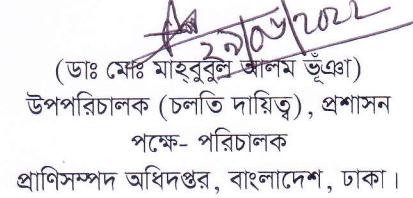 (ডাঃ মোঃ মাহ্‌বুবুল আলম ভূঁঞা)
উপপরিচালক (চলতি দায়িত্ব), প্রশাসন
পক্ষে- পরিচালক
প্রাণিসম্পদ অধিদপ্তর, বাংলাদেশ, ঢাকা।